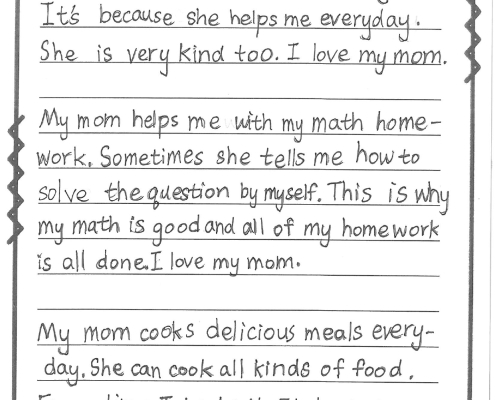 It's because she helps me everyday.
She is very kind too. I love my mom.
My mom helps me with my math home-
work. Sometimes she tells me how to
solve the question by myself. This is why
my math is good and all of my homework
is all done. I love my mom.
My mom cooks delicious meals every-
day. She can cook all kinds of food.